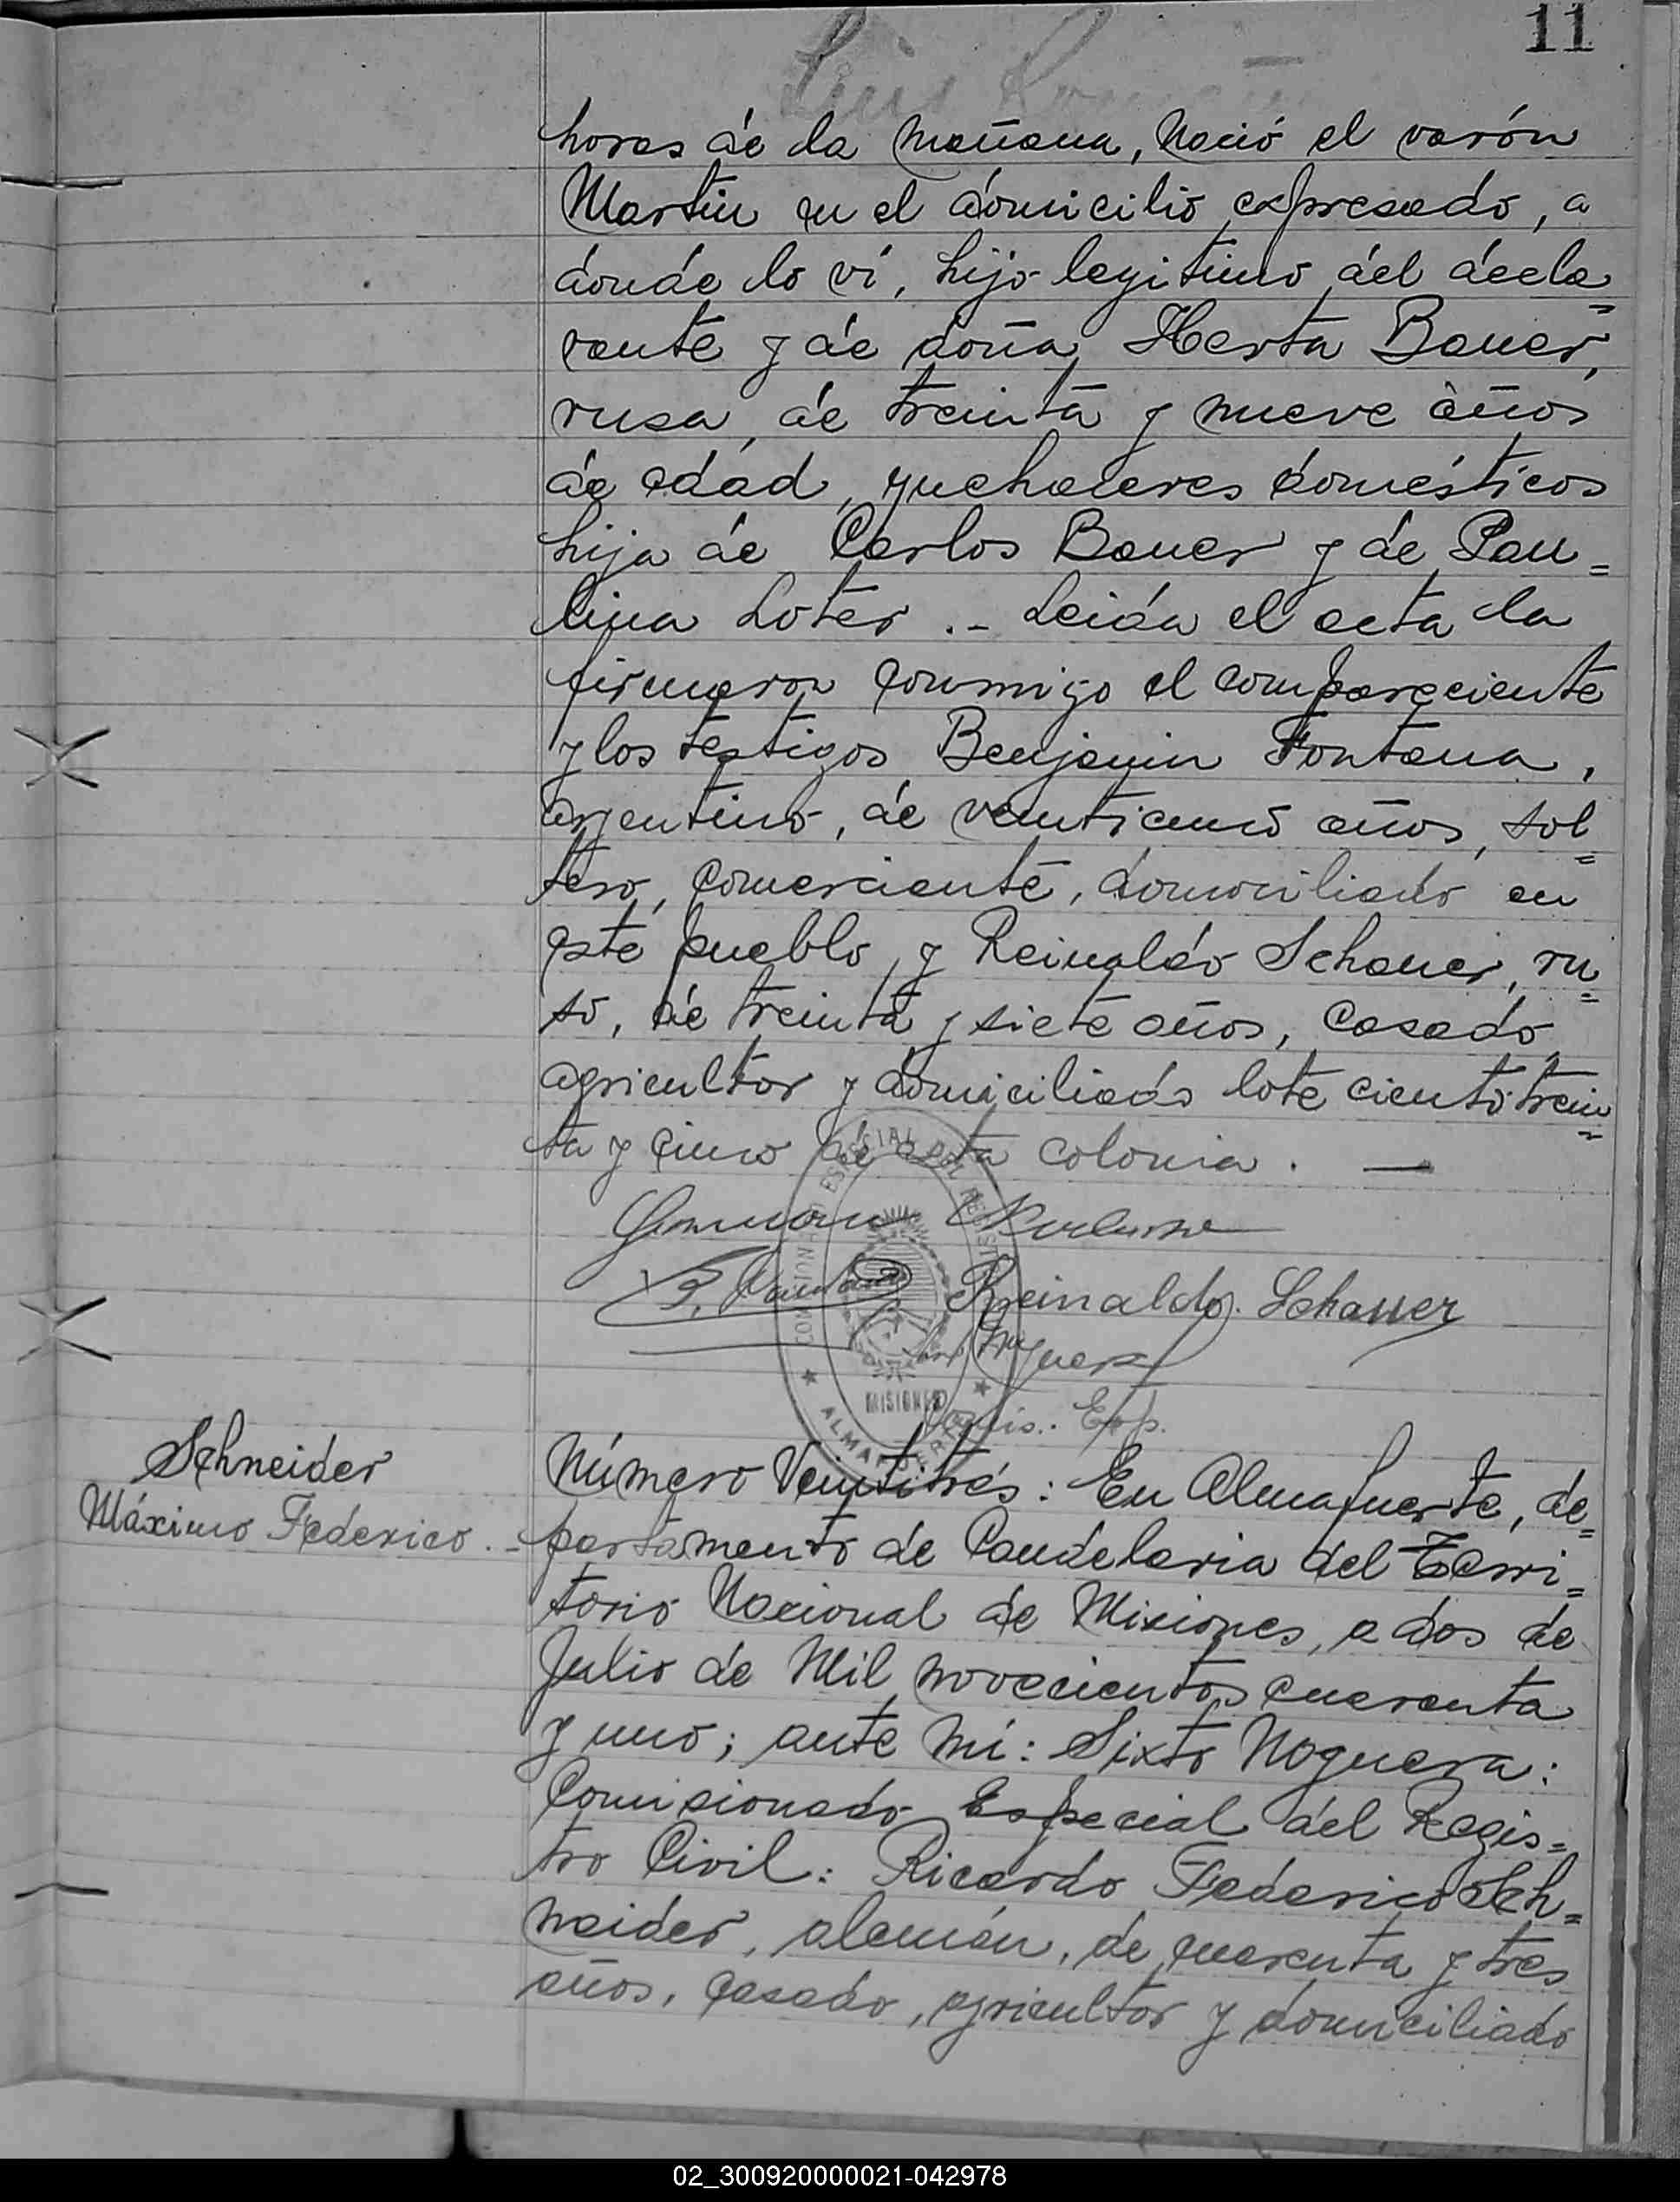 11
Luis
horas de la mañana, Nació el varón
Martin en el domicilio expresado, a
donde lo ví, hijo legitimo del decla=
rante y de doña Herta Bauer,
rusa, de treinta y nueve años
de edad, quehaceres domésticos
hija de Carlos Bauer y de Pau=
lina Loter .- Leida el acta la
firmaron conmigo el compareciente
y los testigos Benjamin Fontana,
argentino, de veinticinco años, sol=
tero, comerciante, domiciliado en
este pueblo, y Reinaldo Schauer, ru=
so, de treinta y siete años, casado
agricultor y domiciliado lote ciento trein=
ta y cinco de esta colonia. —
German
B. Fontana
Reinaldo. Schauer
COMISIONADO ESPECIAL DEL REGISTRO
MISIONES
ALMAFUERTE
Comis. Esp.
Schneider
Máximo Federico .-
Número Veintitrés: En Almafuerte, de=
partamento de Candelaria del Terri=
torio Nacional de Misiones, a dos de
Julio de Mil novecientos cuarenta
y uno; ante mí: Sixto Noguera:
Comisionado Especial del Regis=
tro Civil: Ricardo Federico Sch=
neider, alemán, de cuarenta y tres
años, casado, agricultor y domiciliado
02_300920000021-042978